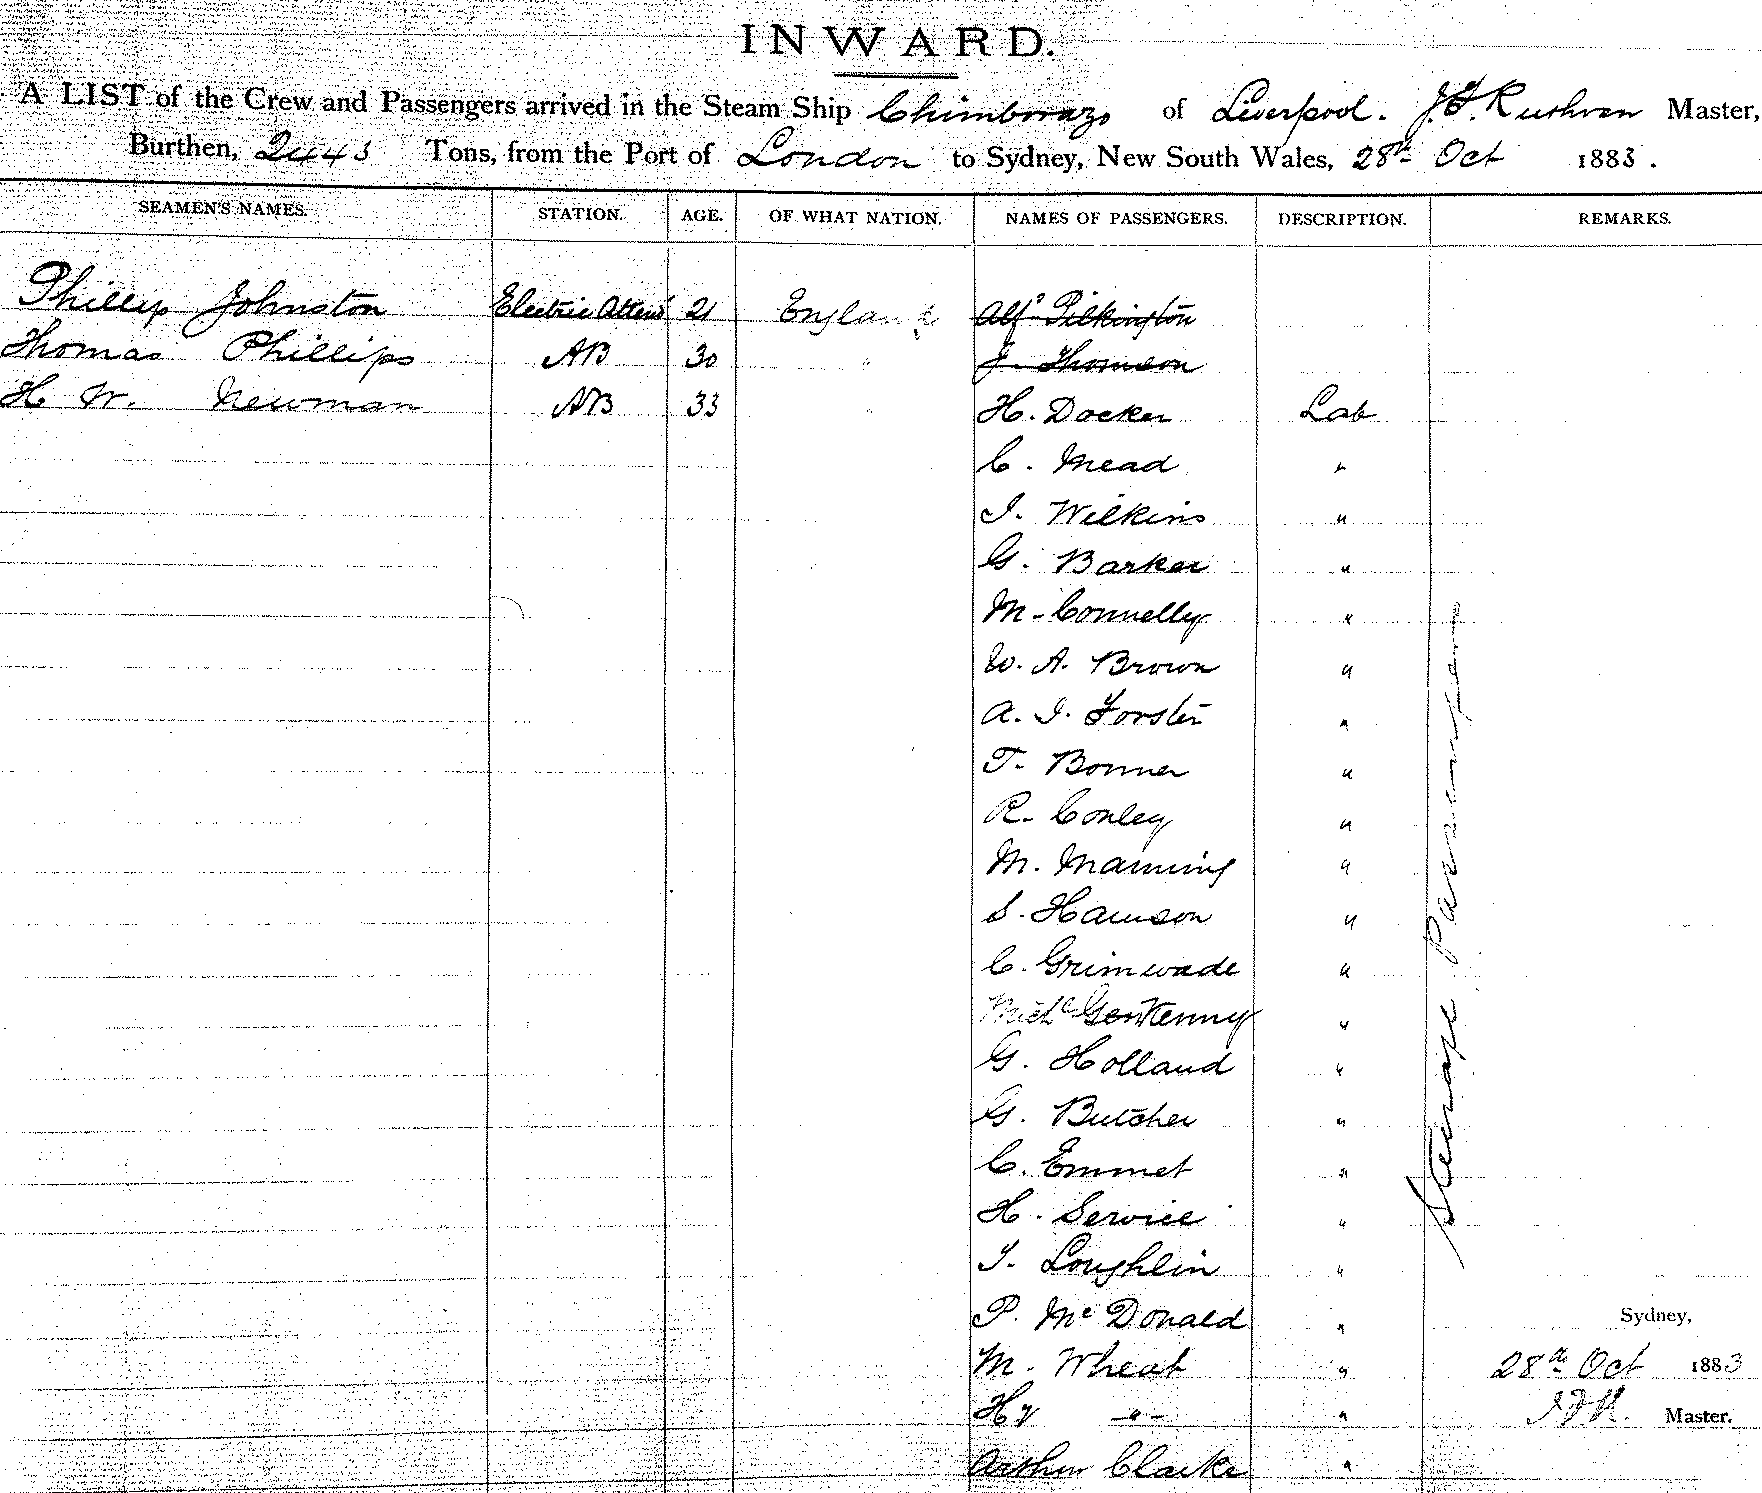 INWARD.
A LIST of the Crew and Passengers arrived in the Steam Ship Chimborazo of Liverpool. J.F. Ruthven Master,
Burthen, 2443 Tons, from the Port of London to Sydney, New South Wales, 28th Oct 1883.
SEAMEN'S NAMES. STATION. AGE. OF WHAT NATION. NAMES OF PASSENGERS. DESCRIPTION. REMARKS.
Phillip Johnston Electric Attend 21 England Alfd Pilkington
Thomas Phillips AB 30 " J. Thomson
H W. Newman AB 33 " H. Docker Lab
C. Mead "
J. Wilkins "
G. Barker "
M. Connelly "
W. A. Brown "
A. J. Forster "
T. Bonner "
R. Conley "
M. Manning "
S. Harrison "
C. Grimwade "
Michl Kenny "
G. Holland "
G. Butcher "
C. Emmet "
H. Service "
J. Loughlin "
P. McDonald "
M. Wheat "
Hy " "
Arthur Clarke "
Steerage Passengers
Sydney,
28th Oct 1883
J.F.R. Master.